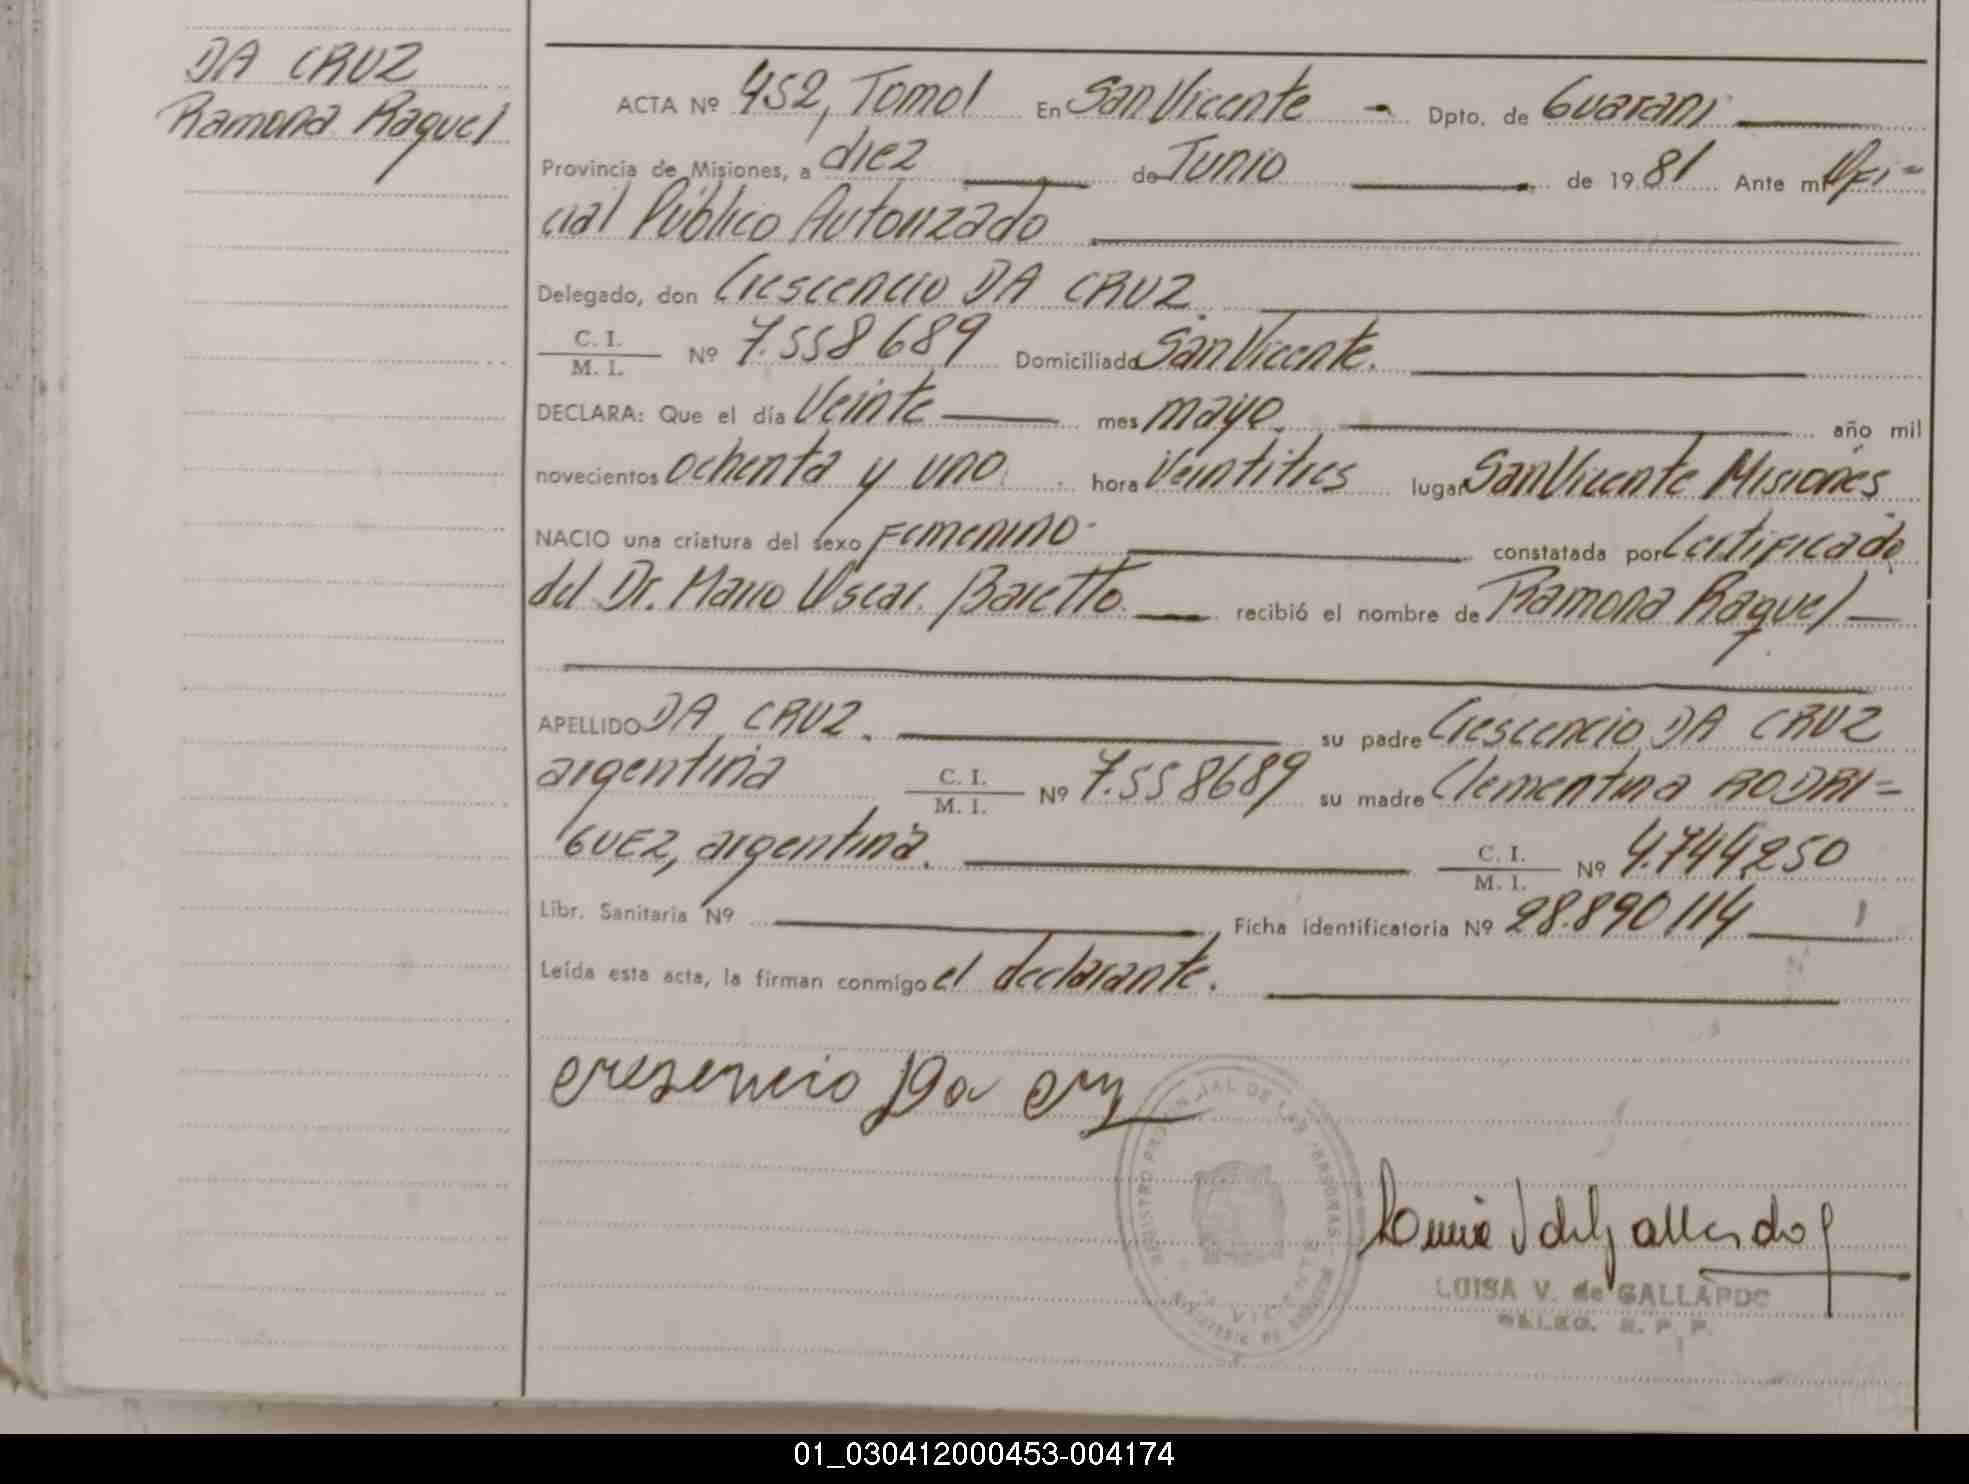 DA CRUZ
Ramona Raquel
ACTA Nº 452, Tomo I En San Vicente - Dpto. de Guarani
Provincia de Misiones, a diez de Junio de 1981 Ante mi Ofi=
cial Público Autorizado
Delegado, don Crescencio DA CRUZ
C. I. / M. I. Nº 7.558689 Domiciliado San Vicente.
DECLARA: Que el día Veinte mes mayo. año mil
novecientos ochenta y uno. hora Veintitres lugar San Vicente Misiones
NACIO una criatura del sexo Femenino constatada por Certificado
del Dr. Mario Oscar. Baretto. recibió el nombre de Ramona Raquel
APELLIDO DA CRUZ. su padre Crescencio DA CRUZ
argentina C. I. / M. I. Nº 7.558689 su madre Clementina RODRI=
GUEZ, argentina. C. I. / M. I. Nº 4.744,250
Libr. Sanitaria Nº Ficha identificatoria Nº 28.890114
Leída esta acta, la firman conmigo el declarante.
cresencio Da cruz
REGISTRO PROVINCIAL DE LAS PERSONAS
LUISA V. de GALLARDO
DELEG. R. P. P.
01_030412000453-004174